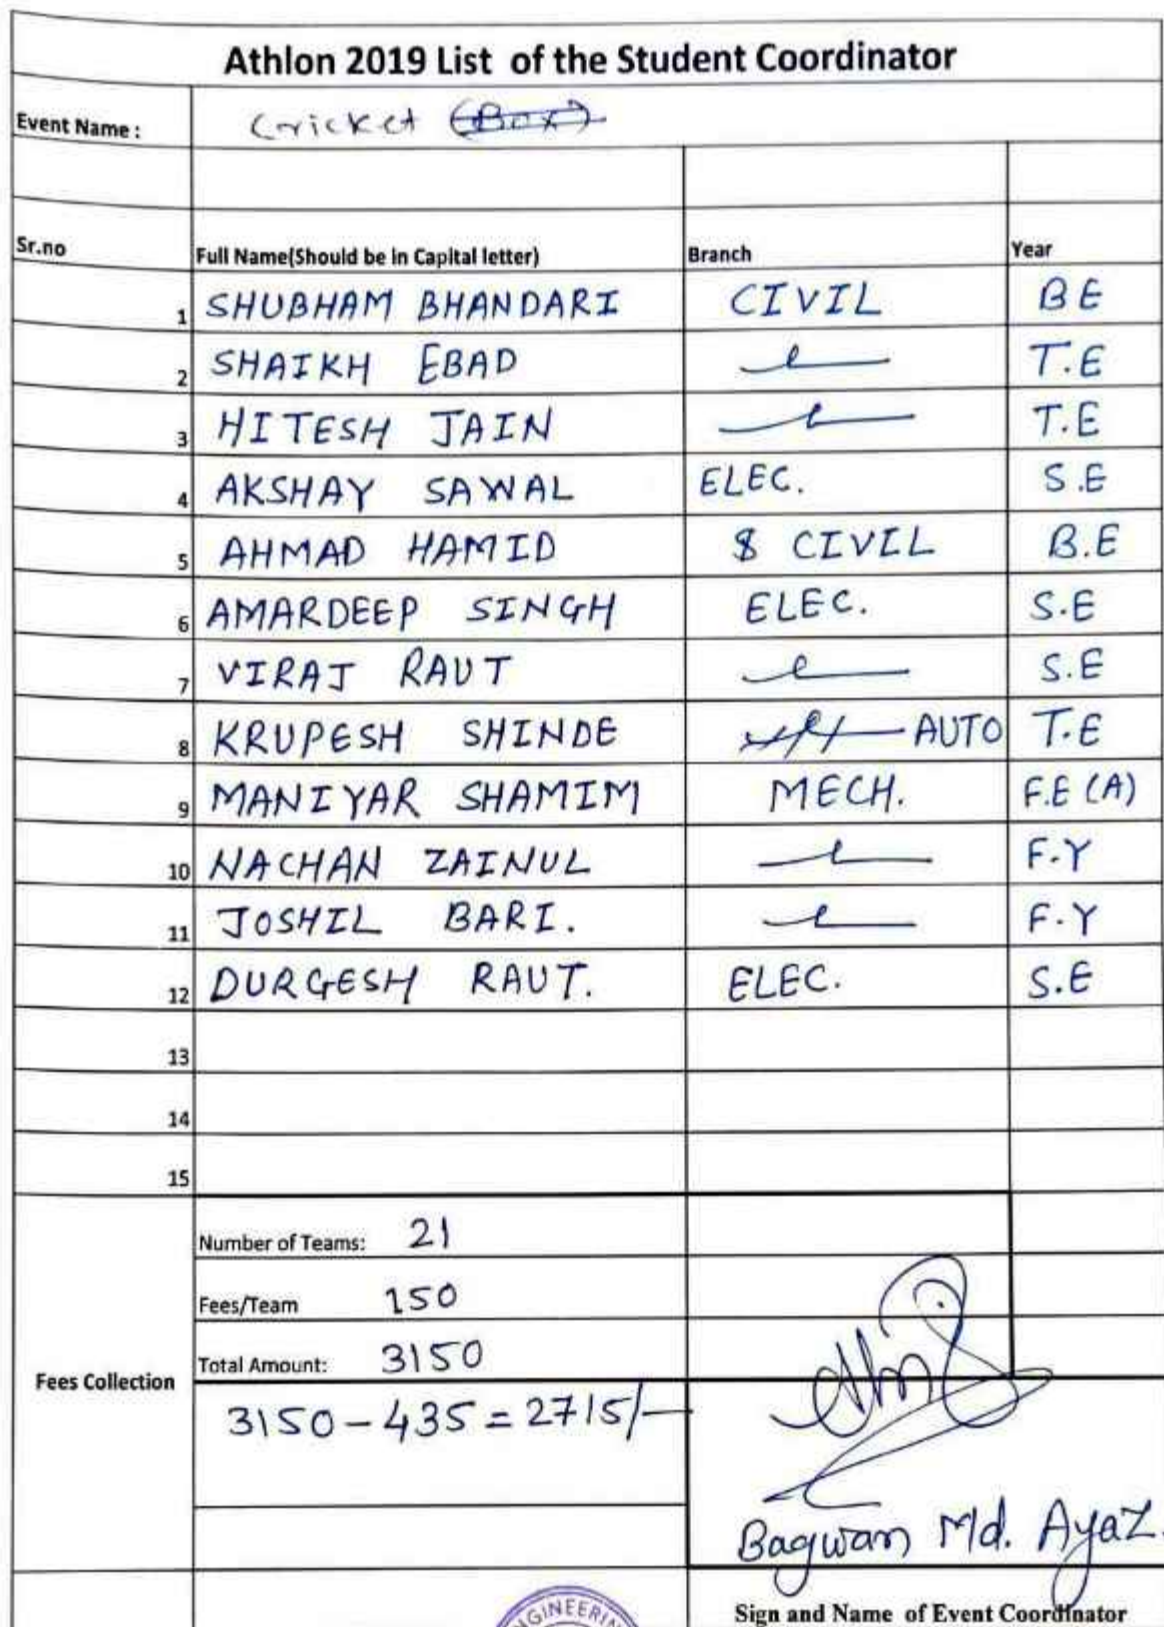 Athlon 2019 List of the Student Coordinator
Event Name : Cricket (Box)
Sr.no Full Name(Should be in Capital letter) Branch Year
1 SHUBHAM BHANDARI CIVIL BE
2 SHAIKH EBAD T.E
3 HITESH JAIN T.E
4 AKSHAY SAWAL ELEC. S.E
5 AHMAD HAMID CIVIL B.E
6 AMARDEEP SINGH ELEC. S.E
7 VIRAJ RAUT S.E
8 KRUPESH SHINDE AUTO T.E
9 MANIYAR SHAMIM MECH. F.E (A)
10 NACHAN ZAINUL F.Y
11 JOSHIL BARI. F.Y
12 DURGESH RAUT. ELEC. S.E
13
14
15
Number of Teams: 21
Fees/Team 150
Total Amount: 3150
Fees Collection
3150 - 435 = 2715/-
Bagwan Md. Ayaz.
Sign and Name of Event Coordinator